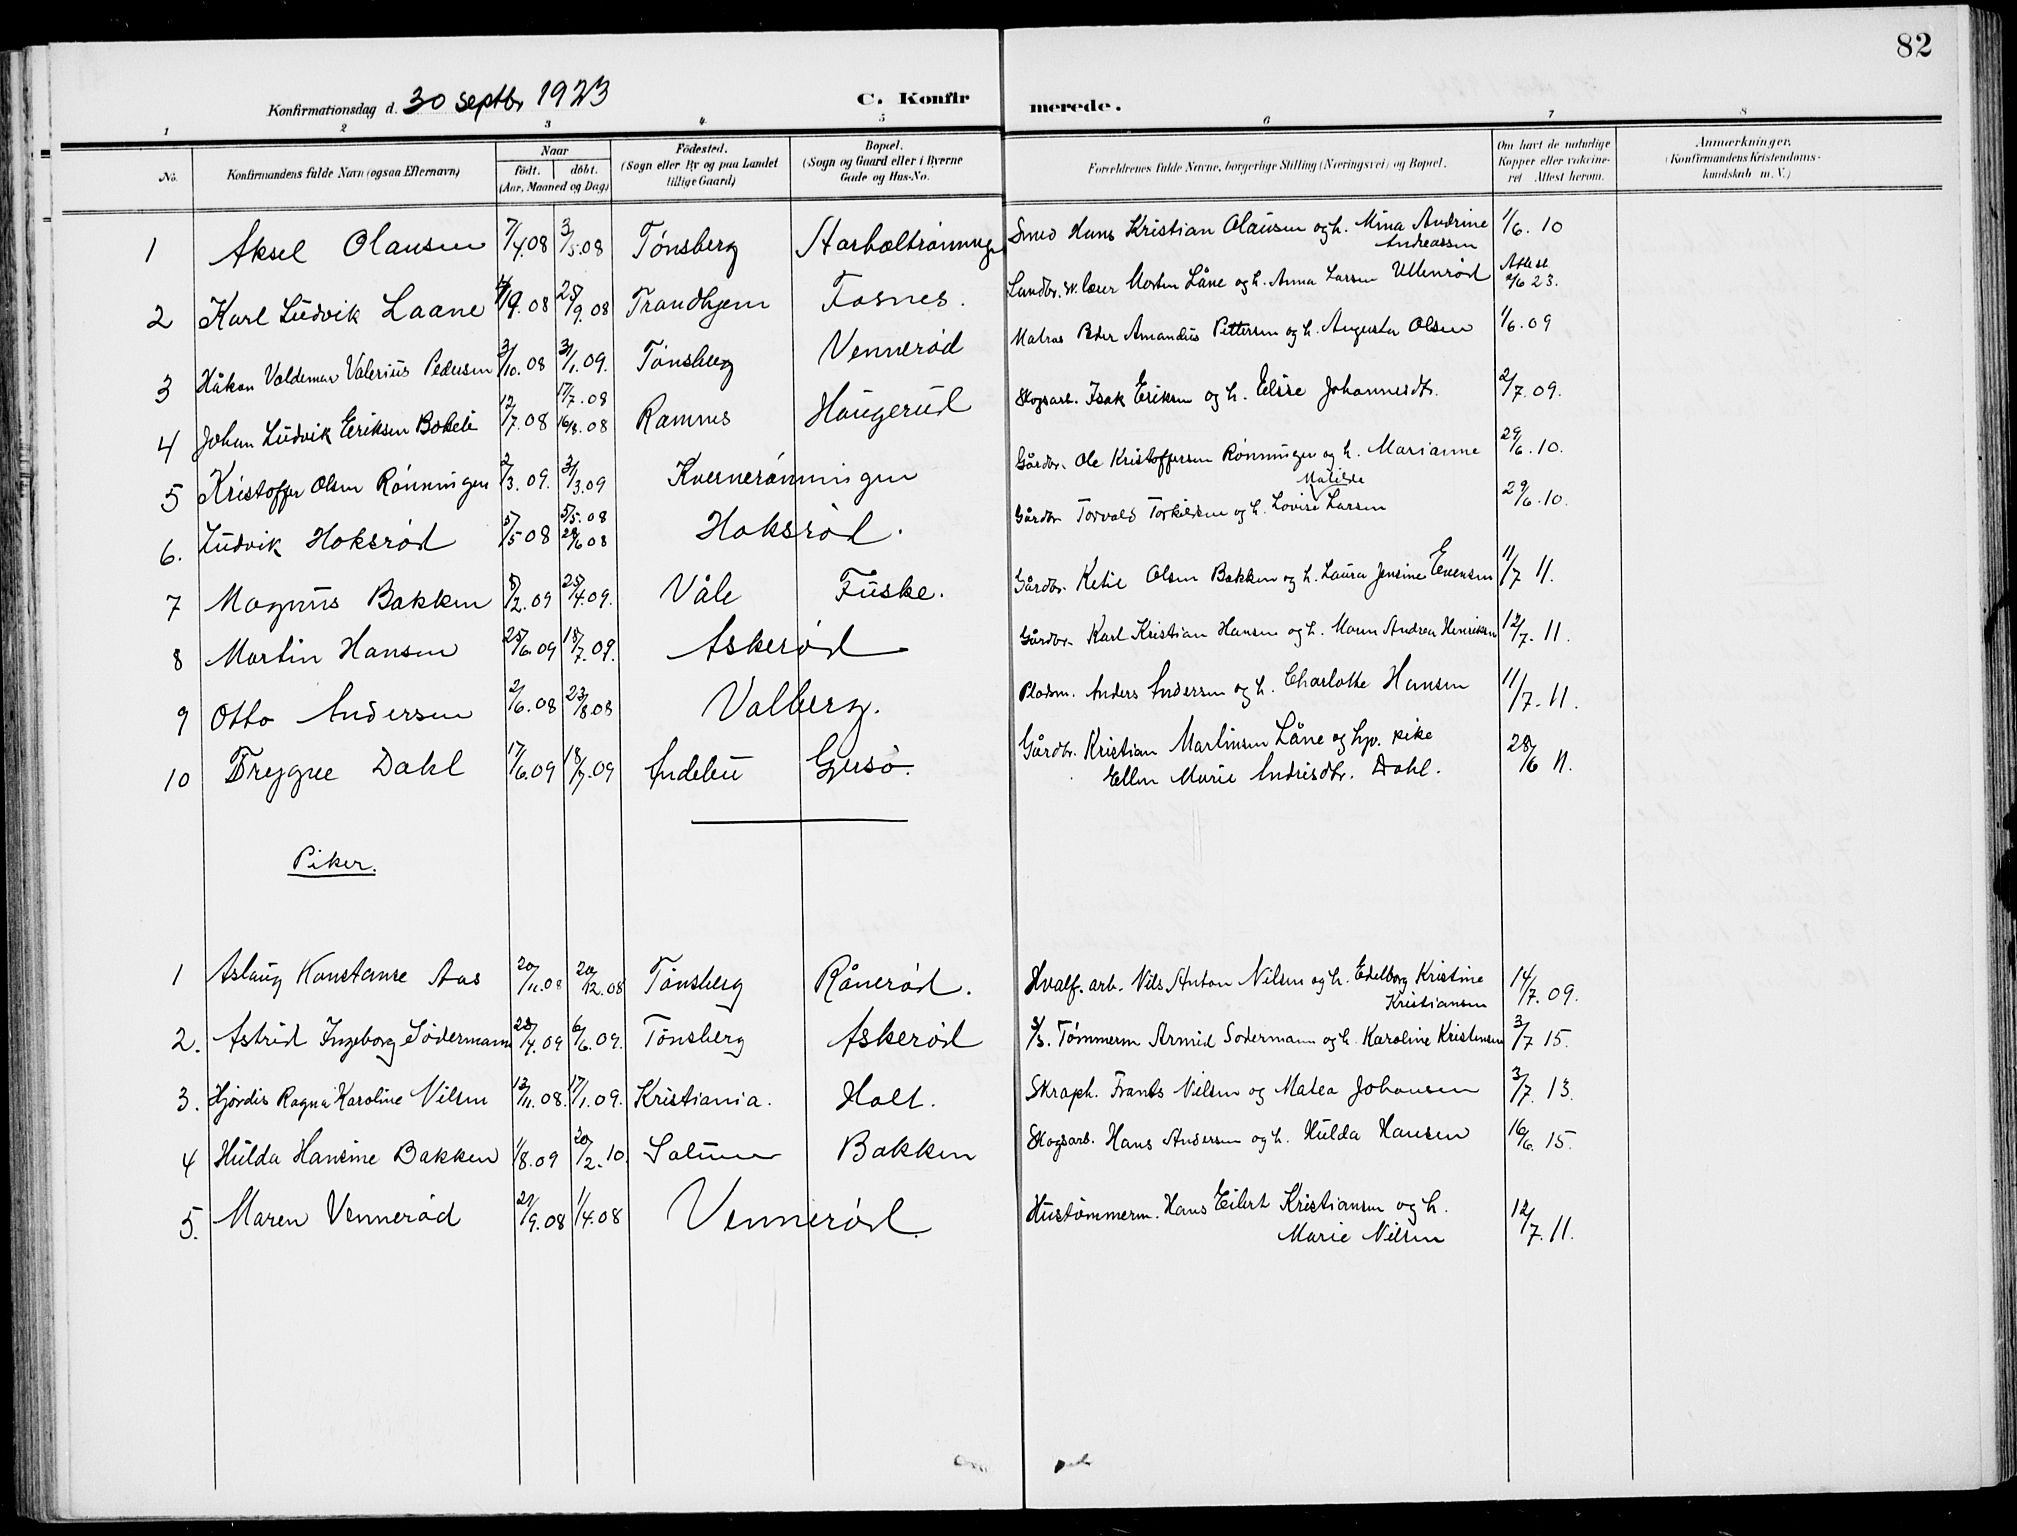 82
Konfirmationsdag d. 30 septbr 1923
C. Konfirmerede.
1 2 3 4 5 6 7 8
No.
Konfirmandens fulde Navn (ogsaa Efternavn)
Naar
födt. döbt.
(Aar, Maaned og Dag)
Födested.
(Sogn eller By og paa Landet
tillige Gaard)
Bopæl.
(Sogn og Gaard eller i Byerne
Gade og Hus-No.
Forældrenes fulde Navne, borgerlige Stilling (Næringsvei) og Bopæl.
Om havt de naturlige
Kopper eller vakcine-
ret Attest herom.
Anmærkninger.
(Konfirmandens Kristendoms-
kundskab m. V.)
1 Aksel Olausen 7/4.08 3/5.08 Tønsberg Smed Hans Kristian Olausen og h. Mina Andrine Andreassen 1/6. 10
2 Karl Ludvik Laane /9.08 25/9.08 Trondhjem Fosnes. Landbr. Morten Låne og h. Anna Larsen Ullenrød Attest 2/6 23.
3 Håkon Valdemar Valerius Pedersen 3/10.08 31/1.09. Tønsberg Vennerød Matros Peder Amandus Pettersen og h. Augusta Olsen 1/6.09
4 Johan Ludvik Eriksen Bokeli 12/7.08 17/7.08 16/8.08 Ramnes Haugerud Skogsarb. Isak Eriksen og h. Elise Johannesdtr. 2/7.09.
5 Kristoffer Olsen Rønningen 2/3.09. 31/3.09 Kvernerønningen Gårdbr. Ole Kristoffersen Rønningen og h. Marianne 29/6.10.
6. Ludvik Hoksrød 5/5 08 5/5.08 28/6 08 Hoksrød. Gårdbr Torvald Torkildsen og h. Lovise Matilde Larsen 29/6.10.
7 Magnus Bakken 8/2.09 25/4.09. Våle Fuske. Gårdbr. Ketil Olsen Bakken og h. Laura Jensine Evensen 11/7 11.
8 Martin Hansen 25/6.09 18/7.09. Askerød Gårdbr. Karl Kristian Hansen og h. Maren Andrea Henriksen 12/7. 11.
9 Otto Andersen 2/6.08 23/8.08 Valberg. Pladsm. Anders Andersen og h. Charlotte Hansen 11/7. 11.
10 Trygve Dahl 17/6.09 18/7.09 Andebu Gusø. Gårdbr. Kristian Martinsen Låne og hp. pike
Ellen Marie Andrisdtr. Dahl. 28/6 11.
Piker.
1 Aslaug Konstanse Aas 20/11.08 20/12.08 Tønsberg Rånerød. Hvalf. arb. Nils Anton Nilsen og h. Edelborg Kristine Kristiansen 14/7.09.
2. Astrid Ingeborg Södermann 28/4.09 6/6.09. Tønsberg Askerød Tømmerm Armid Sodermann og h. Karoline Kristensen 3/7 15.
3. Hjørdis Ragna Karoline Nilsen 12/11.08. 17/1.09. Kristiania. Holt. Skraph. Frants Nilsen og Matea Johansen 3/7. 13.
4 Hulda Hansine Bakken 1/8.09 20/2.10. Solum Bakken Skogsarb. Hans Andersen og h. Hulda Hansen 16/6. 15.
5. Maren Vennerød 21/9.08 1/4.08 Vennerød. Hustømmerm. Hans Eilert Kristiansen og h.
Marie Nilsen 12/7. 11.